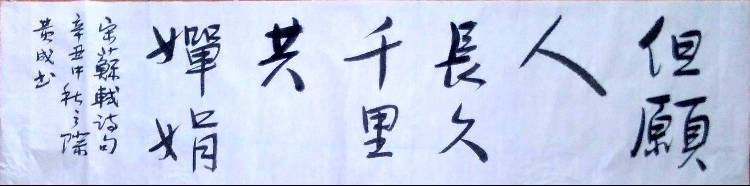 但願
人
長久
千里
共
嬋娟
宋蘇軾詩句
辛丑中秋之際
黄成书